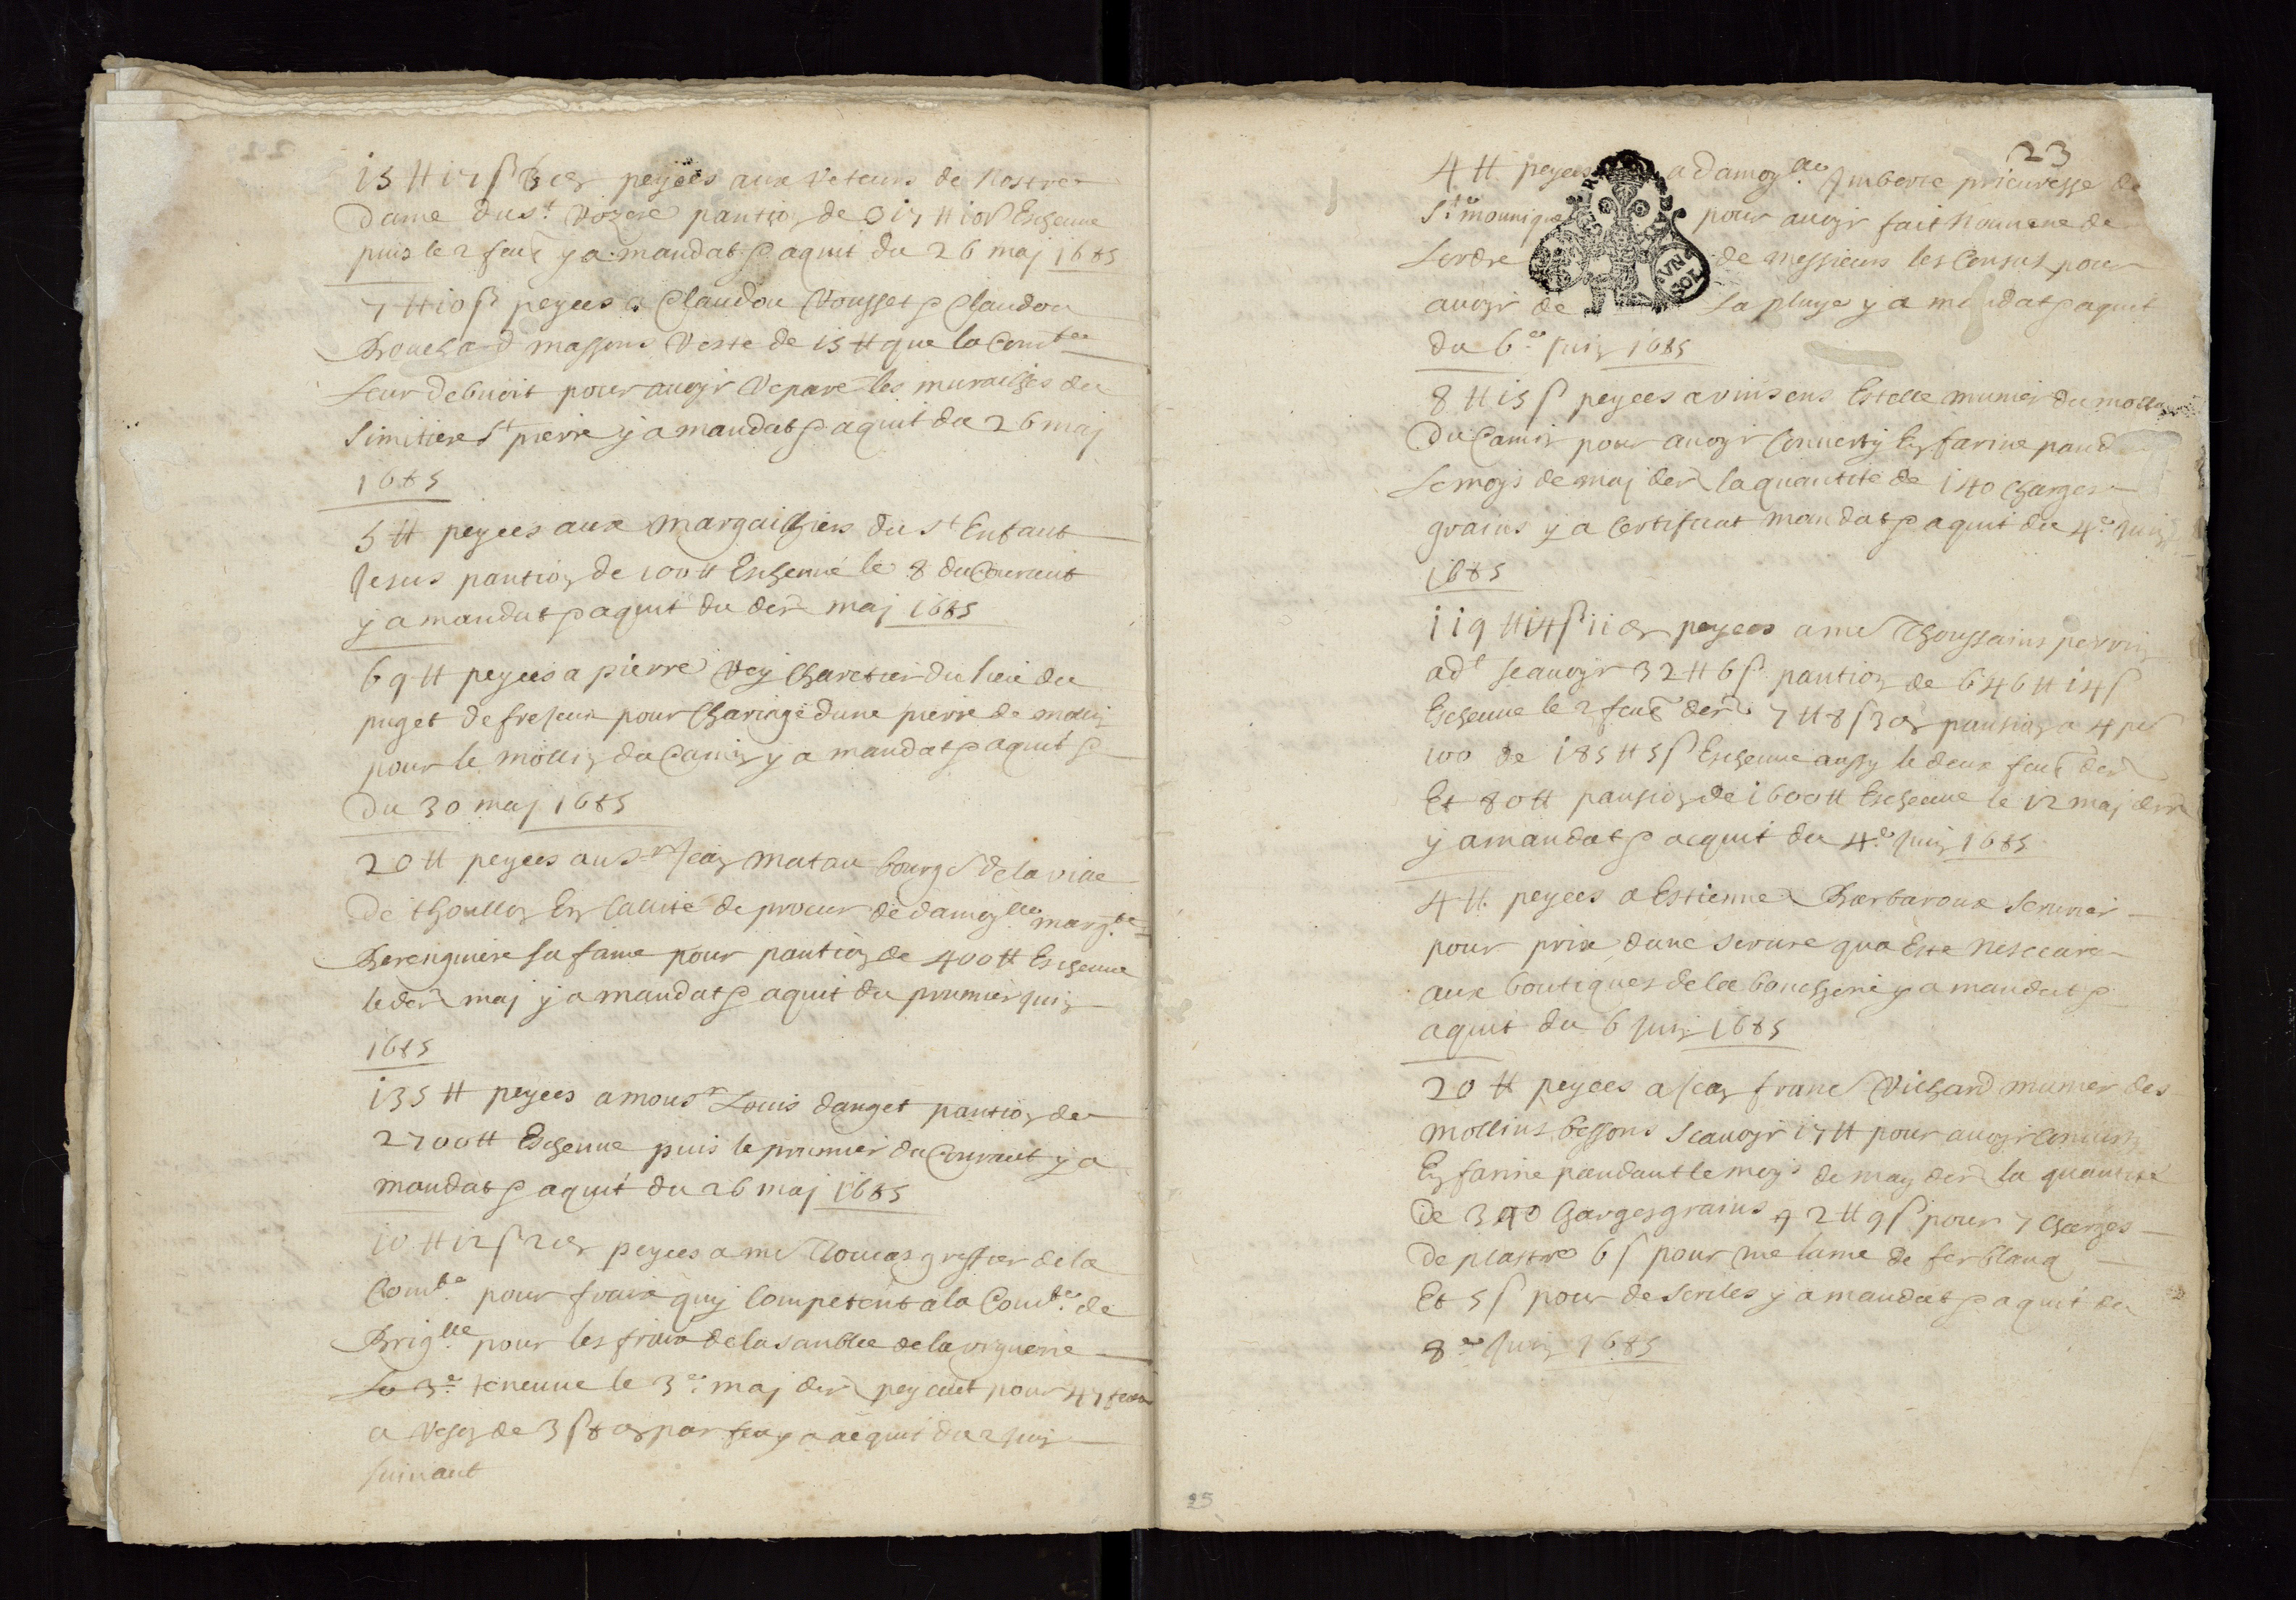 15 # 17 s 6 d peyées aux Reteurs de Nostre
dame du St Rozere pantion de 317 # 10 s Escheue
puis le 2 feut y a mandat & aquit du 26 maj 1685
7 # 10 s peyees a Claudou Rousset & Claudou
Brouchard massons reste de 15 # que la Comté
Leur debuoit pour auoyr repare les murailhes du
Simitiere St pierre y a mandat & aquit du 26 maj
1685
5 # peyees aux margailhiers du St Enfant
Jesus pantion de 100 # Escheue le 8 du Courant
y a mandat & aquit du der maj 1685
69 # peyees a pierre Rey Charetier du lieu du
puget de frejeux pour Chariage dune pierre de
pour le mollin du Camin y a mandat & aquit
Du 30 maj 1685
20 # peyees au Sr Jean matau bourgs de la ville
De thoullon En Callité de procur de damoylle margte
Berenguiere sa fame pour pantion de 400 # Escheue
le der maj y a mandat & aquit du prumier juin
1685
135 # peyees a monsr Louis dauget pantion de
2700 # Escheue puis le prumier du Courant y a
mandat & aquit du 26 maj 1685
10 # 12 s 2 d peyees a me greffier de la
Comté pour fraix quy Competent a la Comté de
Briglle pour les fraix de lasanblee de la viguerie
Le 3e teneue le 3e maj der peyant pour 47 feux
a Reson de 3 s 8 d par feu y a acquit du 2 juin
suiuant
23
4 # peyees a damoylle Imberte prieuresse de
Ste mounique pour auoyr fait
Lordre de messieurs les Consuls pour
auoyr de la pluye y a mandat & aquit
du 6e Juin 1685
8 # 15 s peyees a vinsens Estelle munier du mollin
Du Camin pour auoyr Conuerty En farine pand
Le moys de maj der la quantité de 140 Charges
grains y a Certificat mandat & aquit du 4e Juin
1685
119 # 14 s 11 d peyees a me Thoussains perrin
adt scauoyr 32 # 6 s pantion de 646 # 14 s
Escheue le 2 feut der 7 # 8 s 3 d pantion a 4 per
100 de 185 # 5 s Escheue aussy le deux feut der
Et 80 # pantion de 1600 # Escheue le 12 maj der
y a mandat & acquit du 4e Juin 1685
4 # peyees a Estienne Barbaroux Serurier
pour prix dune serure qua Este Nesceaire
aux boutiques de la boucherie y a mandat &
aquit du 6 Juin 1685
20 # peyees a Jean frans Richard munier des
mollins bessons Scauoyr 17 # pour auoyr Conuerty
En farine pandant le moys de may der la quantité
De 3 Charges grains 2 # 9 s pour 7 Charges
De plastre 6 s pour une lame de fer blanq
Et 5 s pour de y a mandat & aquit du
8e Juin 1685
25